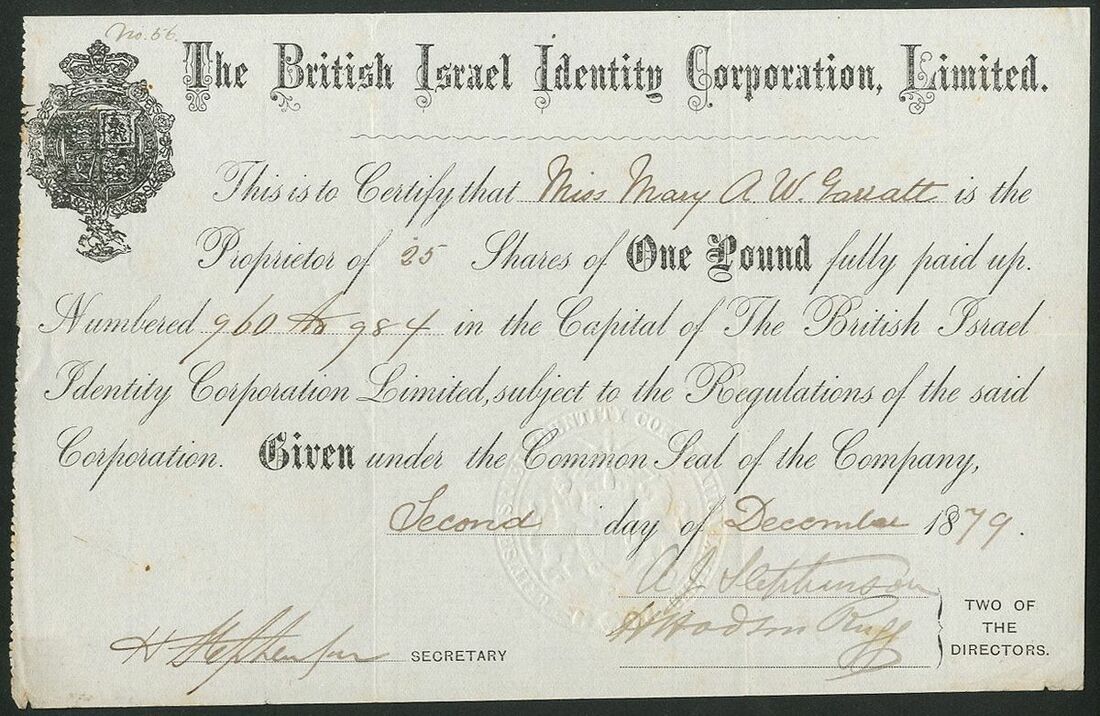 No. 56.
The British Israel Identity Corporation, Limited.
This is to Certify that Miss Mary A W. Garratt is the
Proprietor of 25 Shares of One Pound fully paid up.
Numbered 960 to 984 in the Capital of The British Israel
Identity Corporation Limited, subject to the Regulations of the said
Corporation. Given under the Common Seal of the Company,
Second day of December 1879.
A J Stephenson
H Hodson Rugg
TWO OF
THE
DIRECTORS.
H Stephenson SECRETARY
IDENTITY